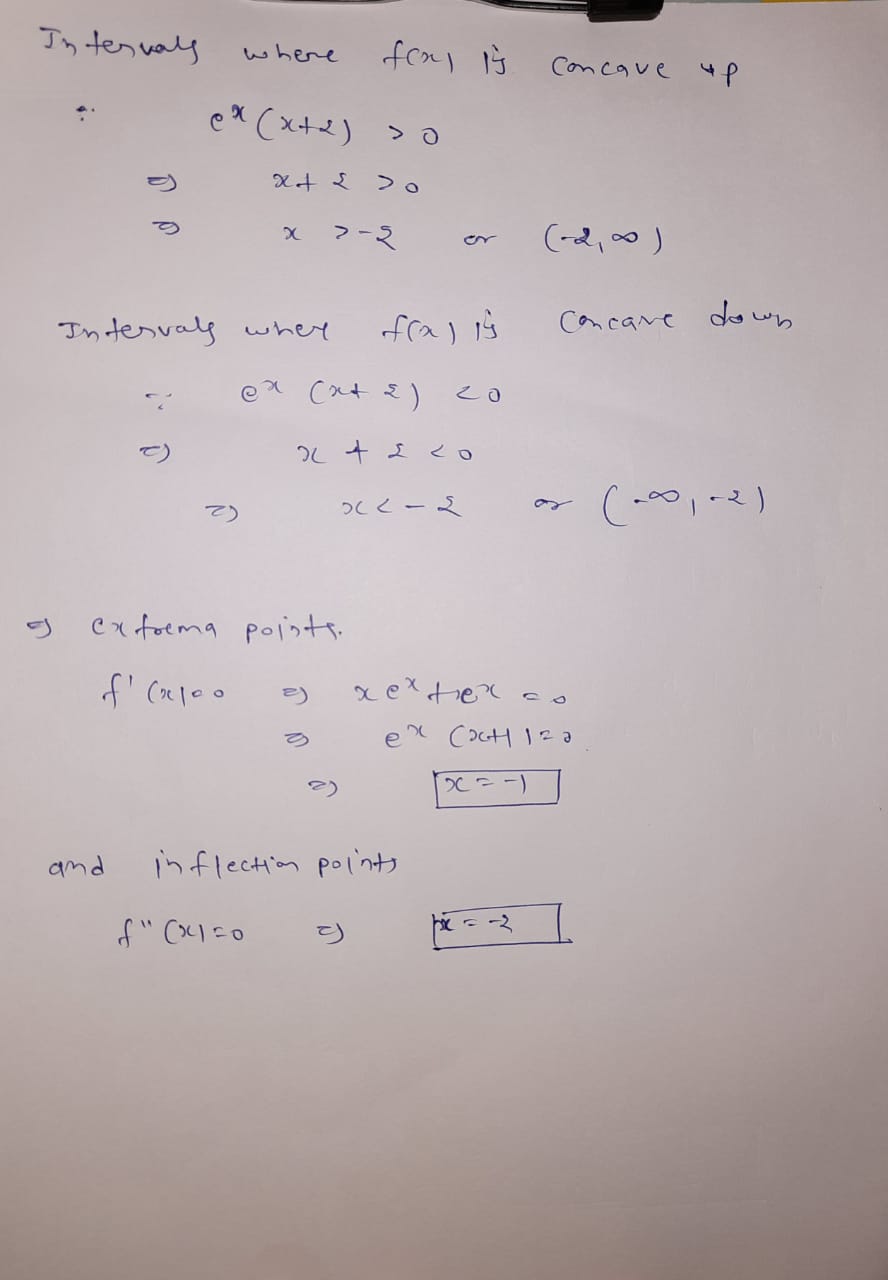 Intervals where f(x) is concave up
∵ e^x (x+2) > 0
⇒ x + 2 > 0
⇒ x > -2 or (-2, ∞)
Intervals where f(x) is concave down
∵ e^x (x+2) < 0
⇒ x + 2 < 0
⇒ x < -2 or (-∞, -2)
⇒ extrema points.
f'(x)=0 ⇒ xe^x + e^x = 0
⇒ e^x (x+1)=0
⇒ x = -1
and inflection points
f"(x)=0 ⇒ x = -2